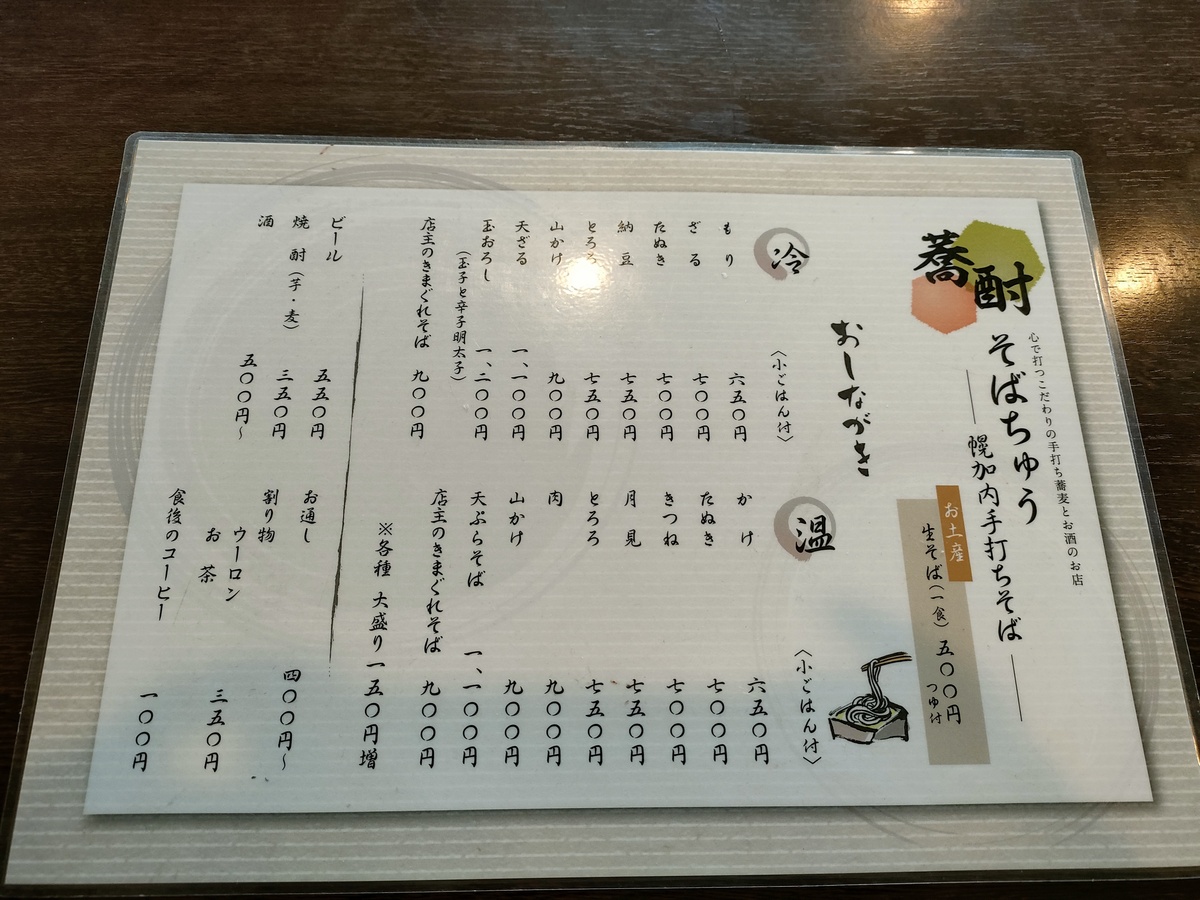 心で打つこだわりの手打ち蕎麦とお酒のお店
蕎酎
そばちゅう
幌加内手打ちそば
お土産
生そば(一食) 五〇〇円
つゆ付
おしながき
冷
〈小ごはん付〉
もり 六五〇円
ざる 七〇〇円
たぬき 七〇〇円
納豆 七五〇円
とろろ 七五〇円
山かけ 九〇〇円
天ざる 一、一〇〇円
玉おろし 一、二〇〇円
(玉子と辛子明太子)
店主のきまぐれそば 九〇〇円
温
〈小ごはん付〉
かけ 六五〇円
たぬき 七〇〇円
きつね 七〇〇円
月見 七五〇円
とろろ 七五〇円
肉 九〇〇円
山かけ 九〇〇円
天ぷらそば 一、一〇〇円
店主のきまぐれそば 九〇〇円
※各種 大盛り一五〇円増
ビール 五五〇円
焼酎(芋・麦) 三五〇円
酒 五〇〇円〜
お通し 四〇〇円〜
割り物
ウーロン
お茶 三五〇円
食後のコーヒー 一〇〇円